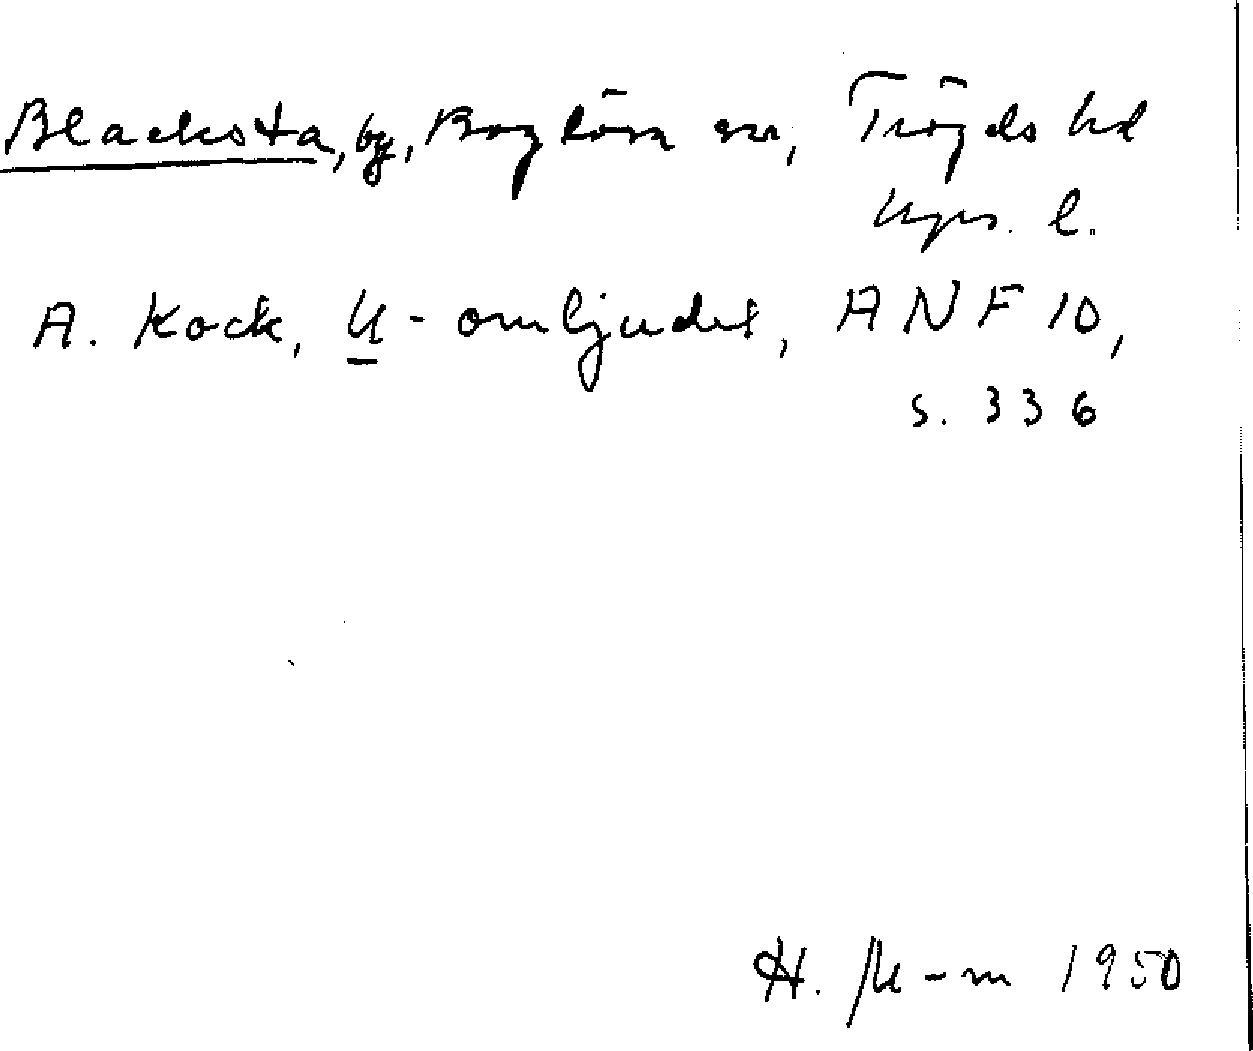 Blacksta, by, Boglösa sn, Trögds hd
Upps. l.
A. Kock, U-omljudet, ANF 10,
s. 336
H. M-m 1950